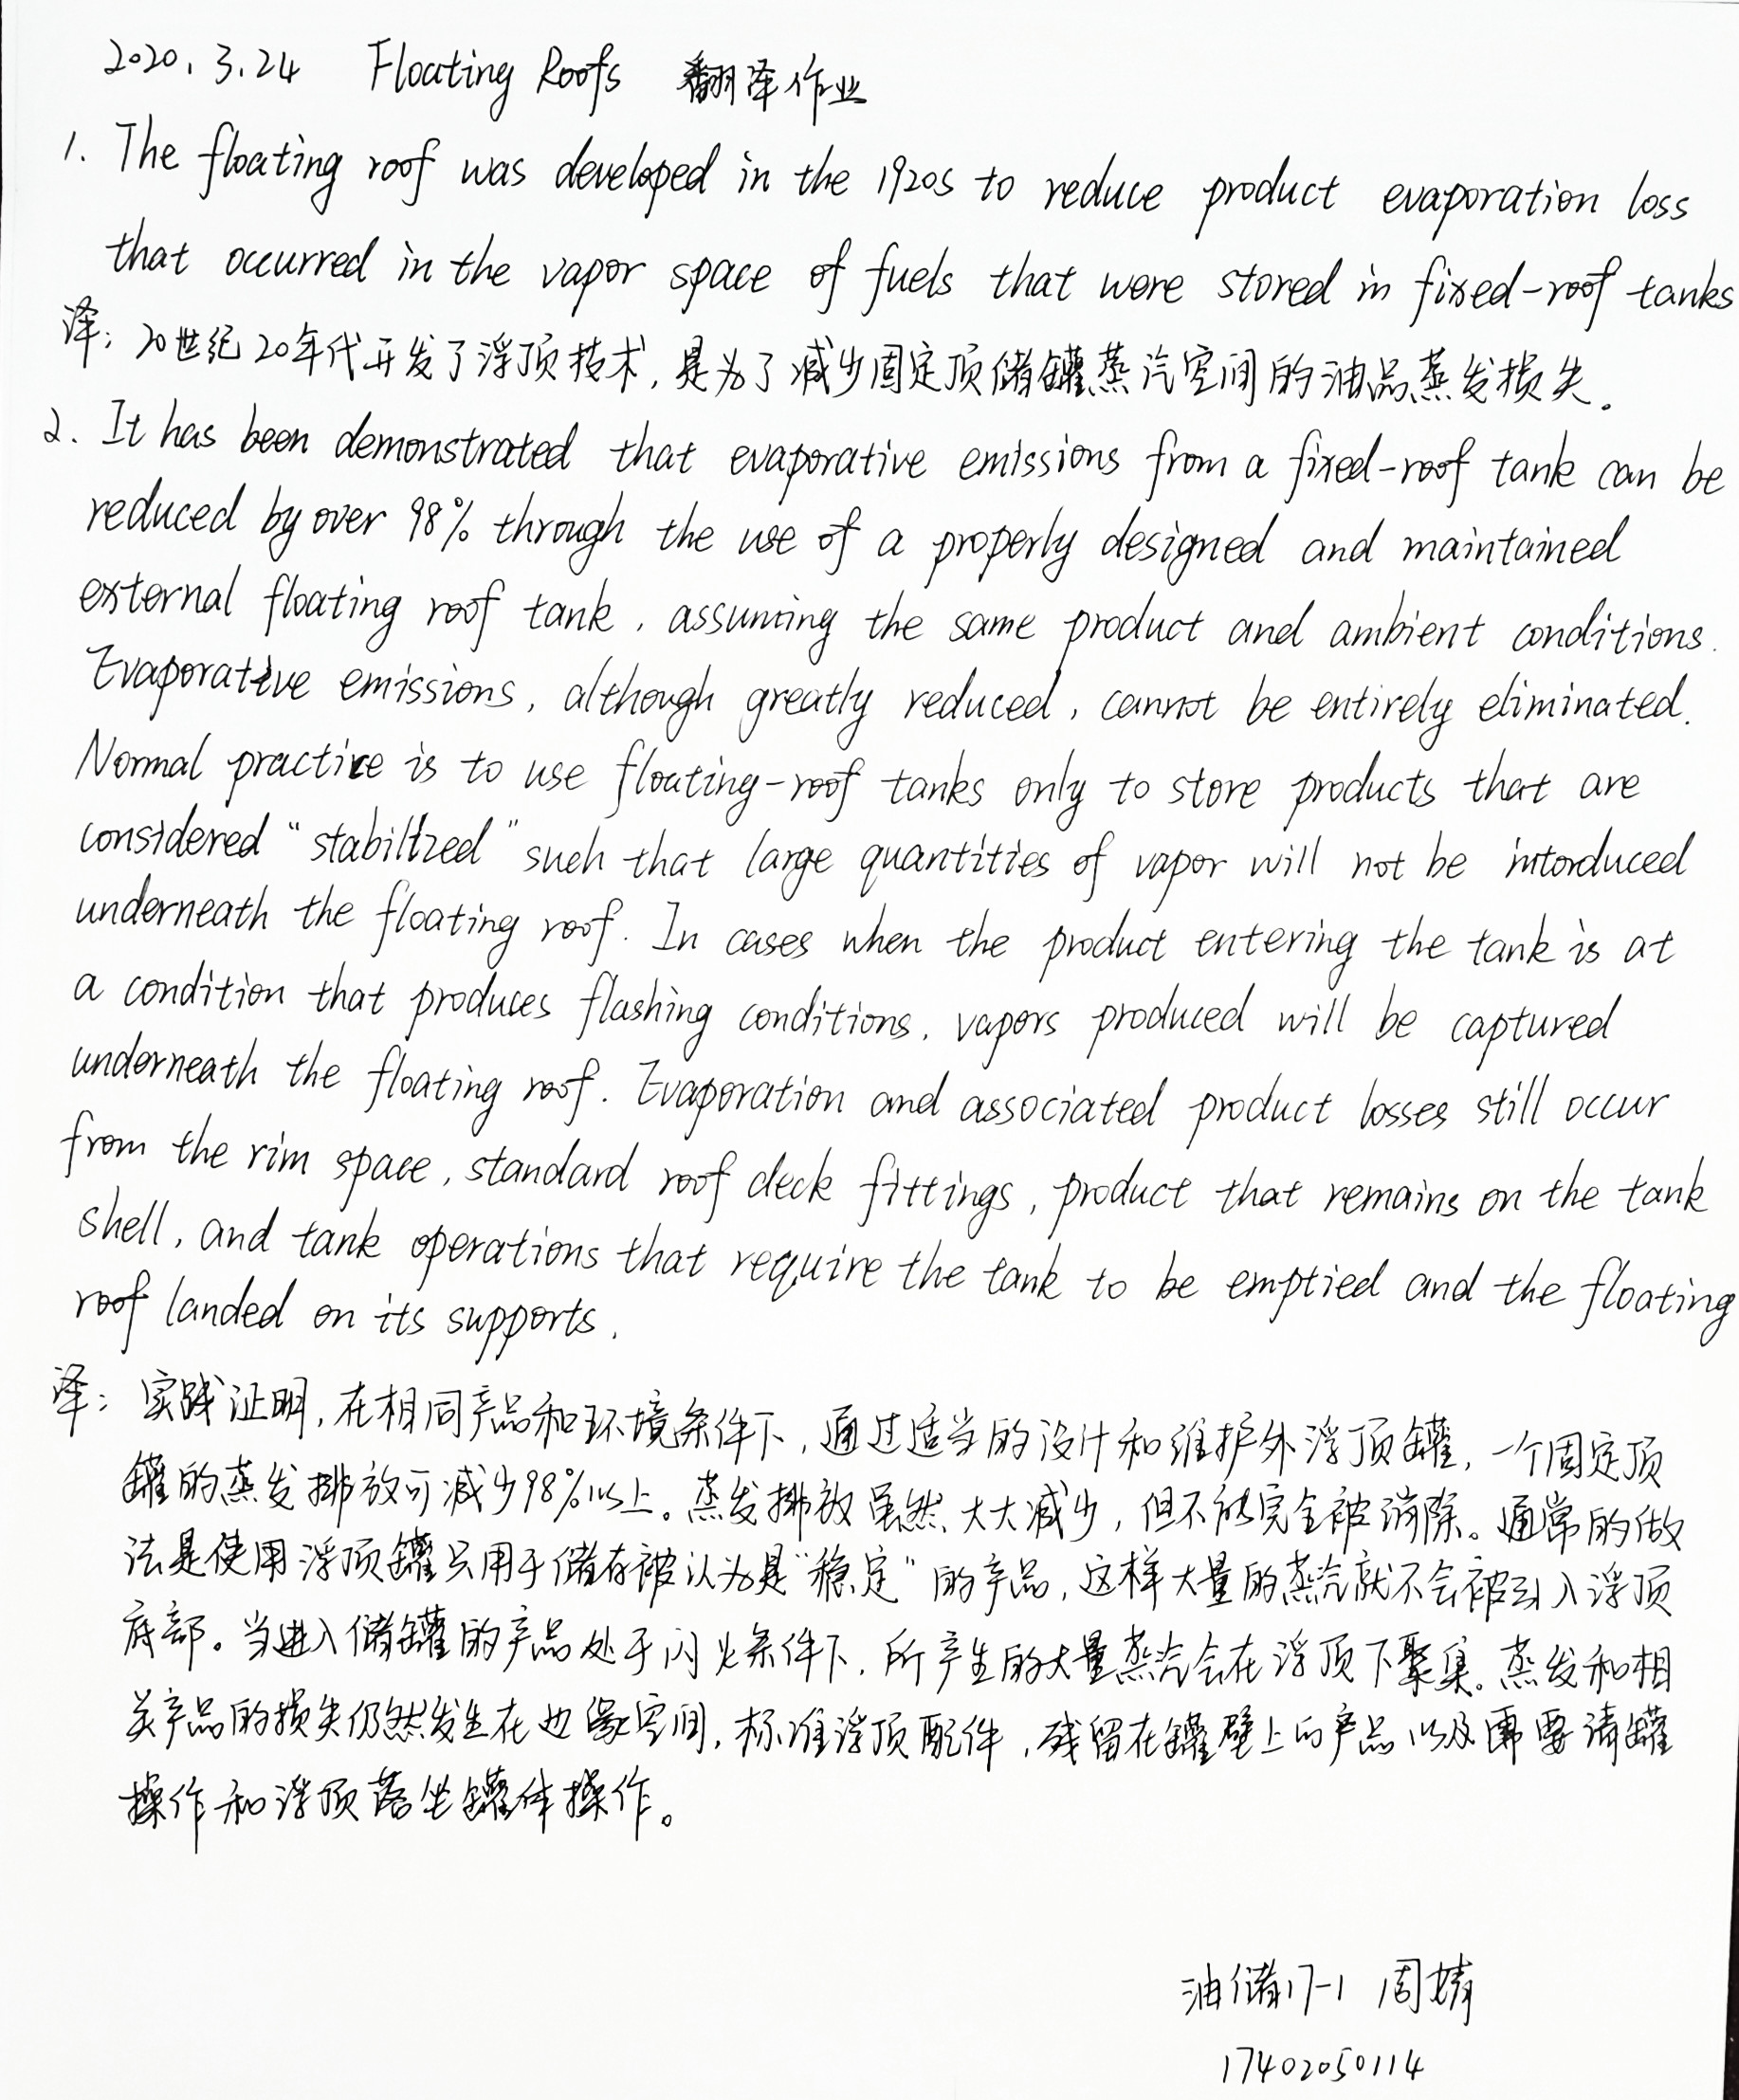 2020.3.24 Floating Roofs 翻译作业
1. The floating roof was developed in the 1920s to reduce product evaporation loss
that occurred in the vapor space of fuels that were stored in fixed-roof tanks
译: 20世纪20年代开发了浮顶技术,是为了减少固定顶储罐蒸汽空间的油品蒸发损失。
2. It has been demonstrated that evaporative emissions from a fixed-roof tank can be
reduced by over 98% through the use of a properly designed and maintained
external floating roof tank, assuming the same product and ambient conditions.
Evaporative emissions, although greatly reduced, cannot be entirely eliminated.
Normal practice is to use floating-roof tanks only to store products that are
considered "stabilized" such that large quantities of vapor will not be intorduced
underneath the floating roof. In cases when the product entering the tank is at
a condition that produces flashing conditions, vapors produced will be captured
underneath the floating roof. Evaporation and associated product losses still occur
from the rim space, standard roof deck fittings, product that remains on the tank
shell, and tank operations that require the tank to be emptied and the floating
roof landed on its supports.
译: 实践证明,在相同产品和环境条件下,通过适当的设计和维护外浮顶罐,一个固定顶
罐的蒸发排放可减少98%以上。蒸发排放虽然大大减少,但不能完全被消除。通常的做
法是使用浮顶罐只用于储存被认为是"稳定"的产品,这样大量的蒸汽就不会被引入浮顶
底部。当进入储罐的产品处于闪火条件下,所产生的大量蒸汽会在浮顶下聚集。蒸发和相
关产品的损失仍然发生在边缘空间,标准浮顶配件,残留在罐壁上的产品以及需要清罐
操作和浮顶落坐罐体操作。
油储17-1 周婧
17402050114